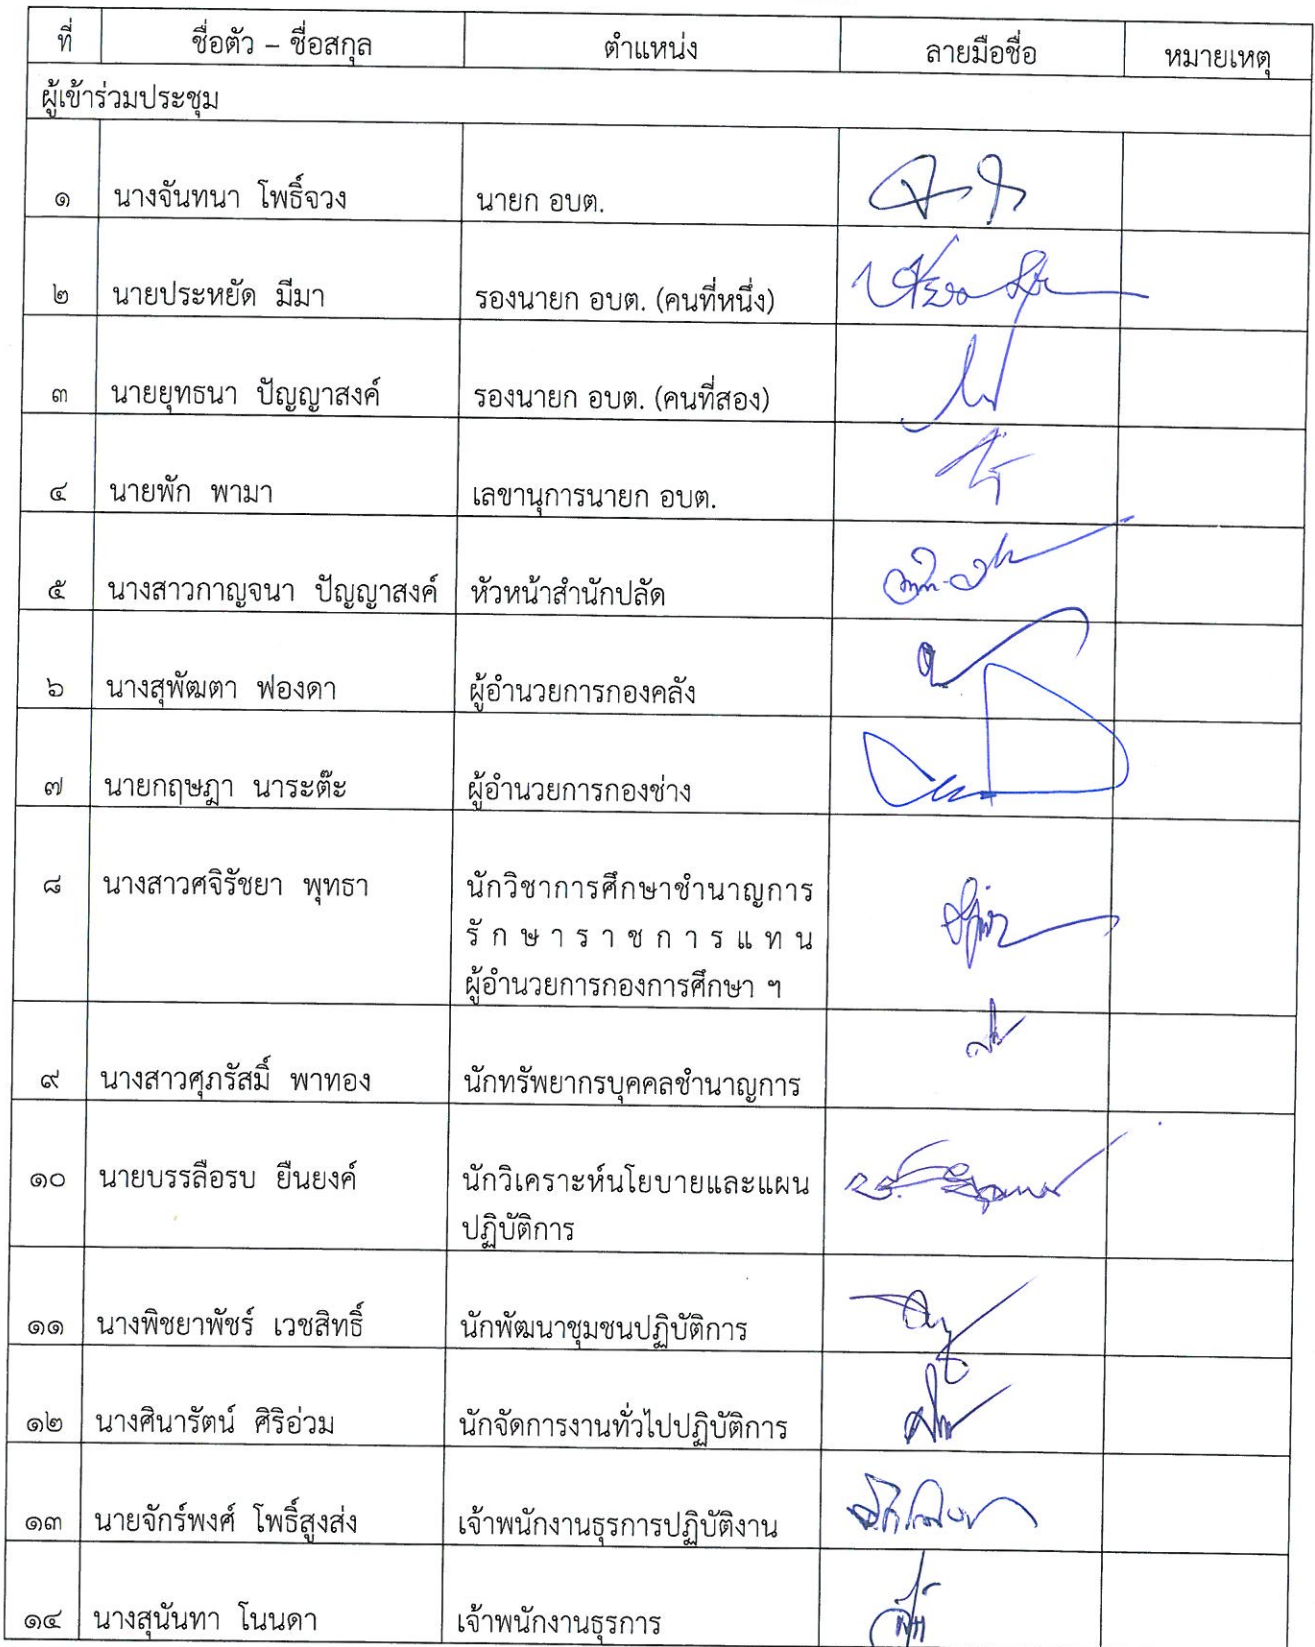 ที่ ชื่อตัว – ชื่อสกุล ตำแหน่ง ลายมือชื่อ หมายเหตุ
ผู้เข้าร่วมประชุม
๑ นางจันทนา โพธิ์จวง นายก อบต.
๒ นายประหยัด มีมา รองนายก อบต. (คนที่หนึ่ง)
๓ นายยุทธนา ปัญญาสงค์ รองนายก อบต. (คนที่สอง)
๔ นายพัก พามา เลขานุการนายก อบต.
๕ นางสาวกาญจนา ปัญญาสงค์ หัวหน้าสำนักปลัด
๖ นางสุพัฒตา ฟองดา ผู้อำนวยการกองคลัง
๗ นายกฤษฎา นาระต๊ะ ผู้อำนวยการกองช่าง
๘ นางสาวศจิรัชยา พุทธา นักวิชาการศึกษาชำนาญการ
รักษาราชการแทน
ผู้อำนวยการกองการศึกษา ฯ
๙ นางสาวศุภรัสมิ์ พาทอง นักทรัพยากรบุคคลชำนาญการ
๑๐ นายบรรลือรบ ยืนยงค์ นักวิเคราะห์นโยบายและแผน
ปฏิบัติการ
๑๑ นางพิชยาพัชร์ เวชสิทธิ์ นักพัฒนาชุมชนปฏิบัติการ
๑๒ นางศินารัตน์ ศิริอ่วม นักจัดการงานทั่วไปปฏิบัติการ
๑๓ นายจักร์พงศ์ โพธิ์สูงส่ง เจ้าพนักงานธุรการปฏิบัติงาน
๑๔ นางสุนันทา โนนดา เจ้าพนักงานธุรการ